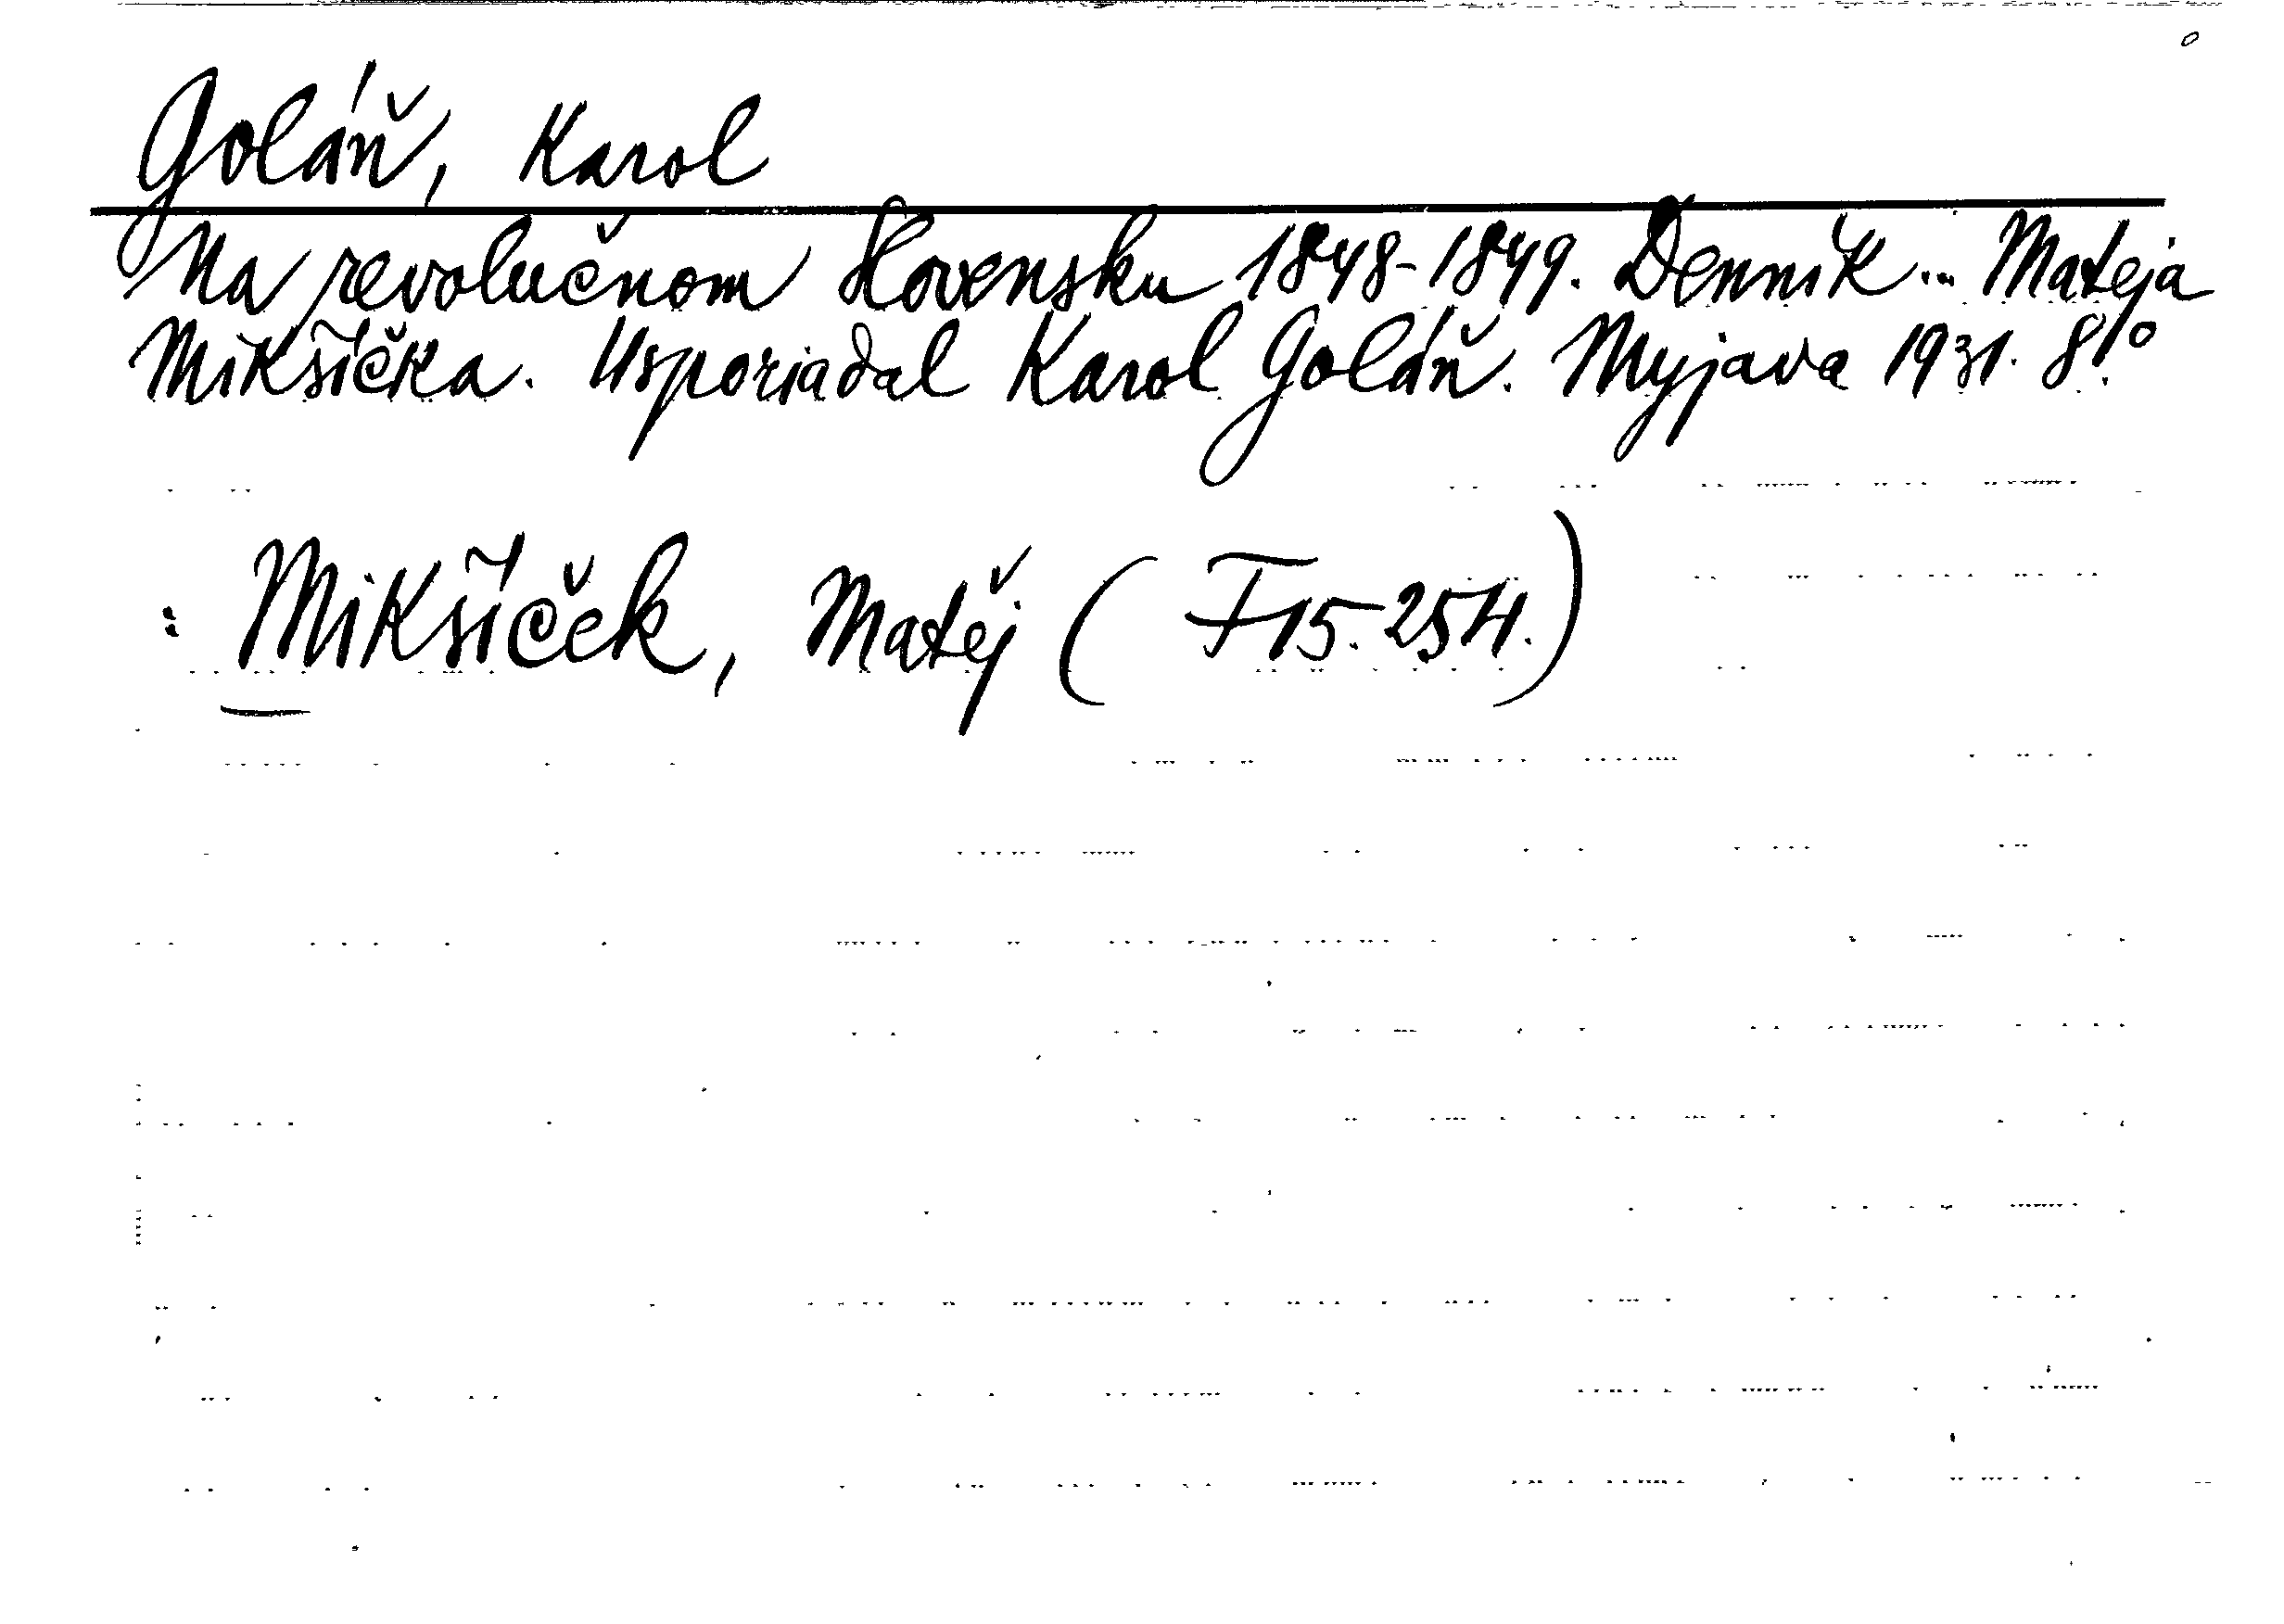 Goláň, Karol
Na revolučnom Slovensku 1848-1849. Denník... Mateja
Mikšíčka. Usporiadal Karol Goláň. Myjava 1931. 8°.
: Mikšíček, Matěj ( F 15.254.)